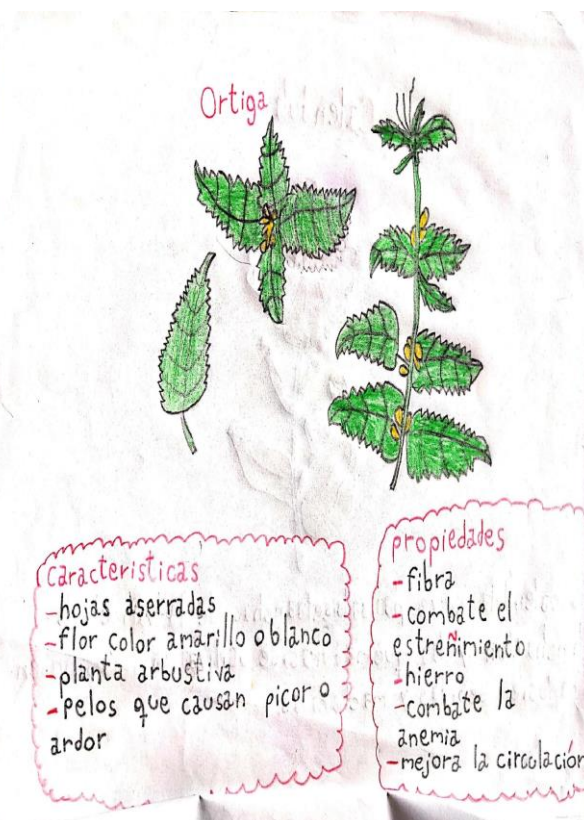 Ortiga
caracteristicas
-hojas aserradas
-flor color amarillo o blanco
-planta arbustiva
-pelos que causan picor o
ardor
propiedades
-fibra
-combate el
estreñimiento
-hierro
-combate la
anemia
-mejora la circulación